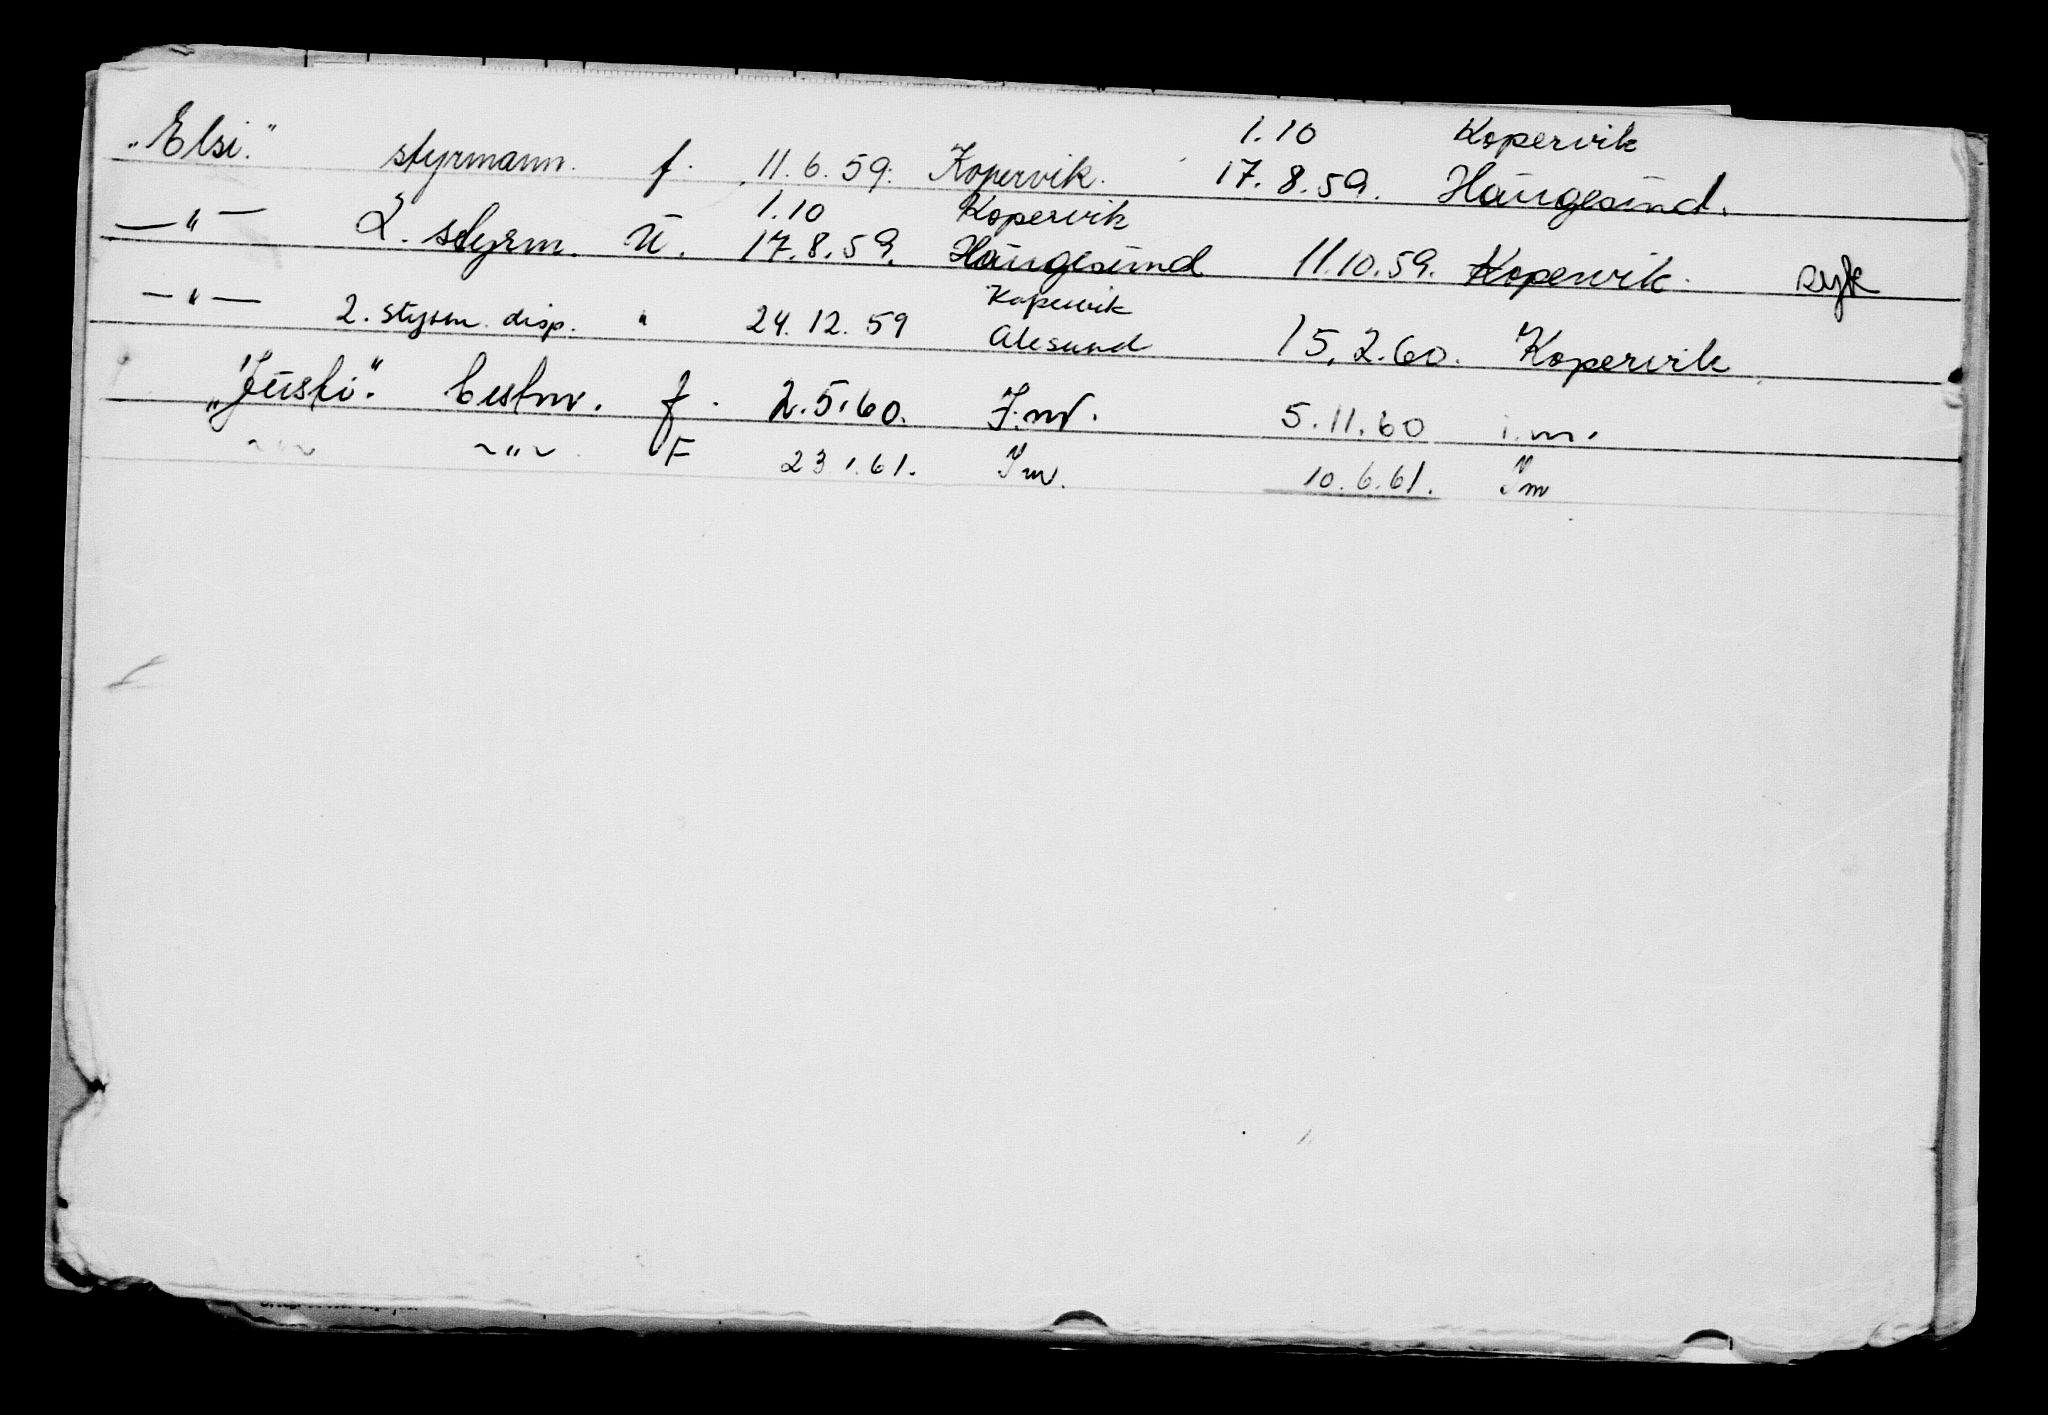 1.10 Kopervik
„Elsi." styrmann. f. 11.6.59. Kopervik. 17.8.59. Haugesund.
1.10 Kopervik
—"— 2. styrm. U. 17.8.59. Haugesund 11.10.59. Kopervik. syk
Kopervik
—"— 2. styrm. disp. " 24.12.59 Alesund 15.2.60. Kopervik
f. 2.5.60. J.m. 5.11.60 i.m.
~"~ ~"~ F 23.1.61. Im. 10.6.61. Im